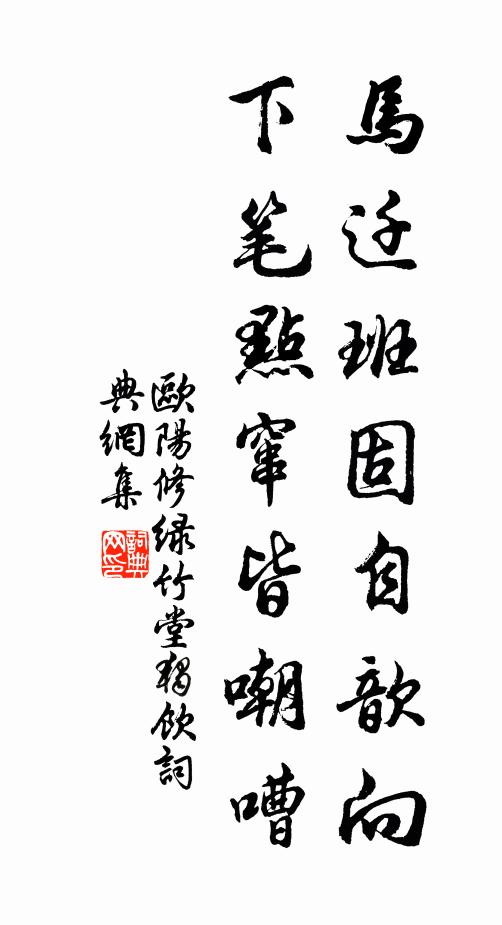 馬迁班固自歆向
下笔點窜皆嘲嘈
歐陽修绿竹堂獨飲詞
典網集
詞典
网印